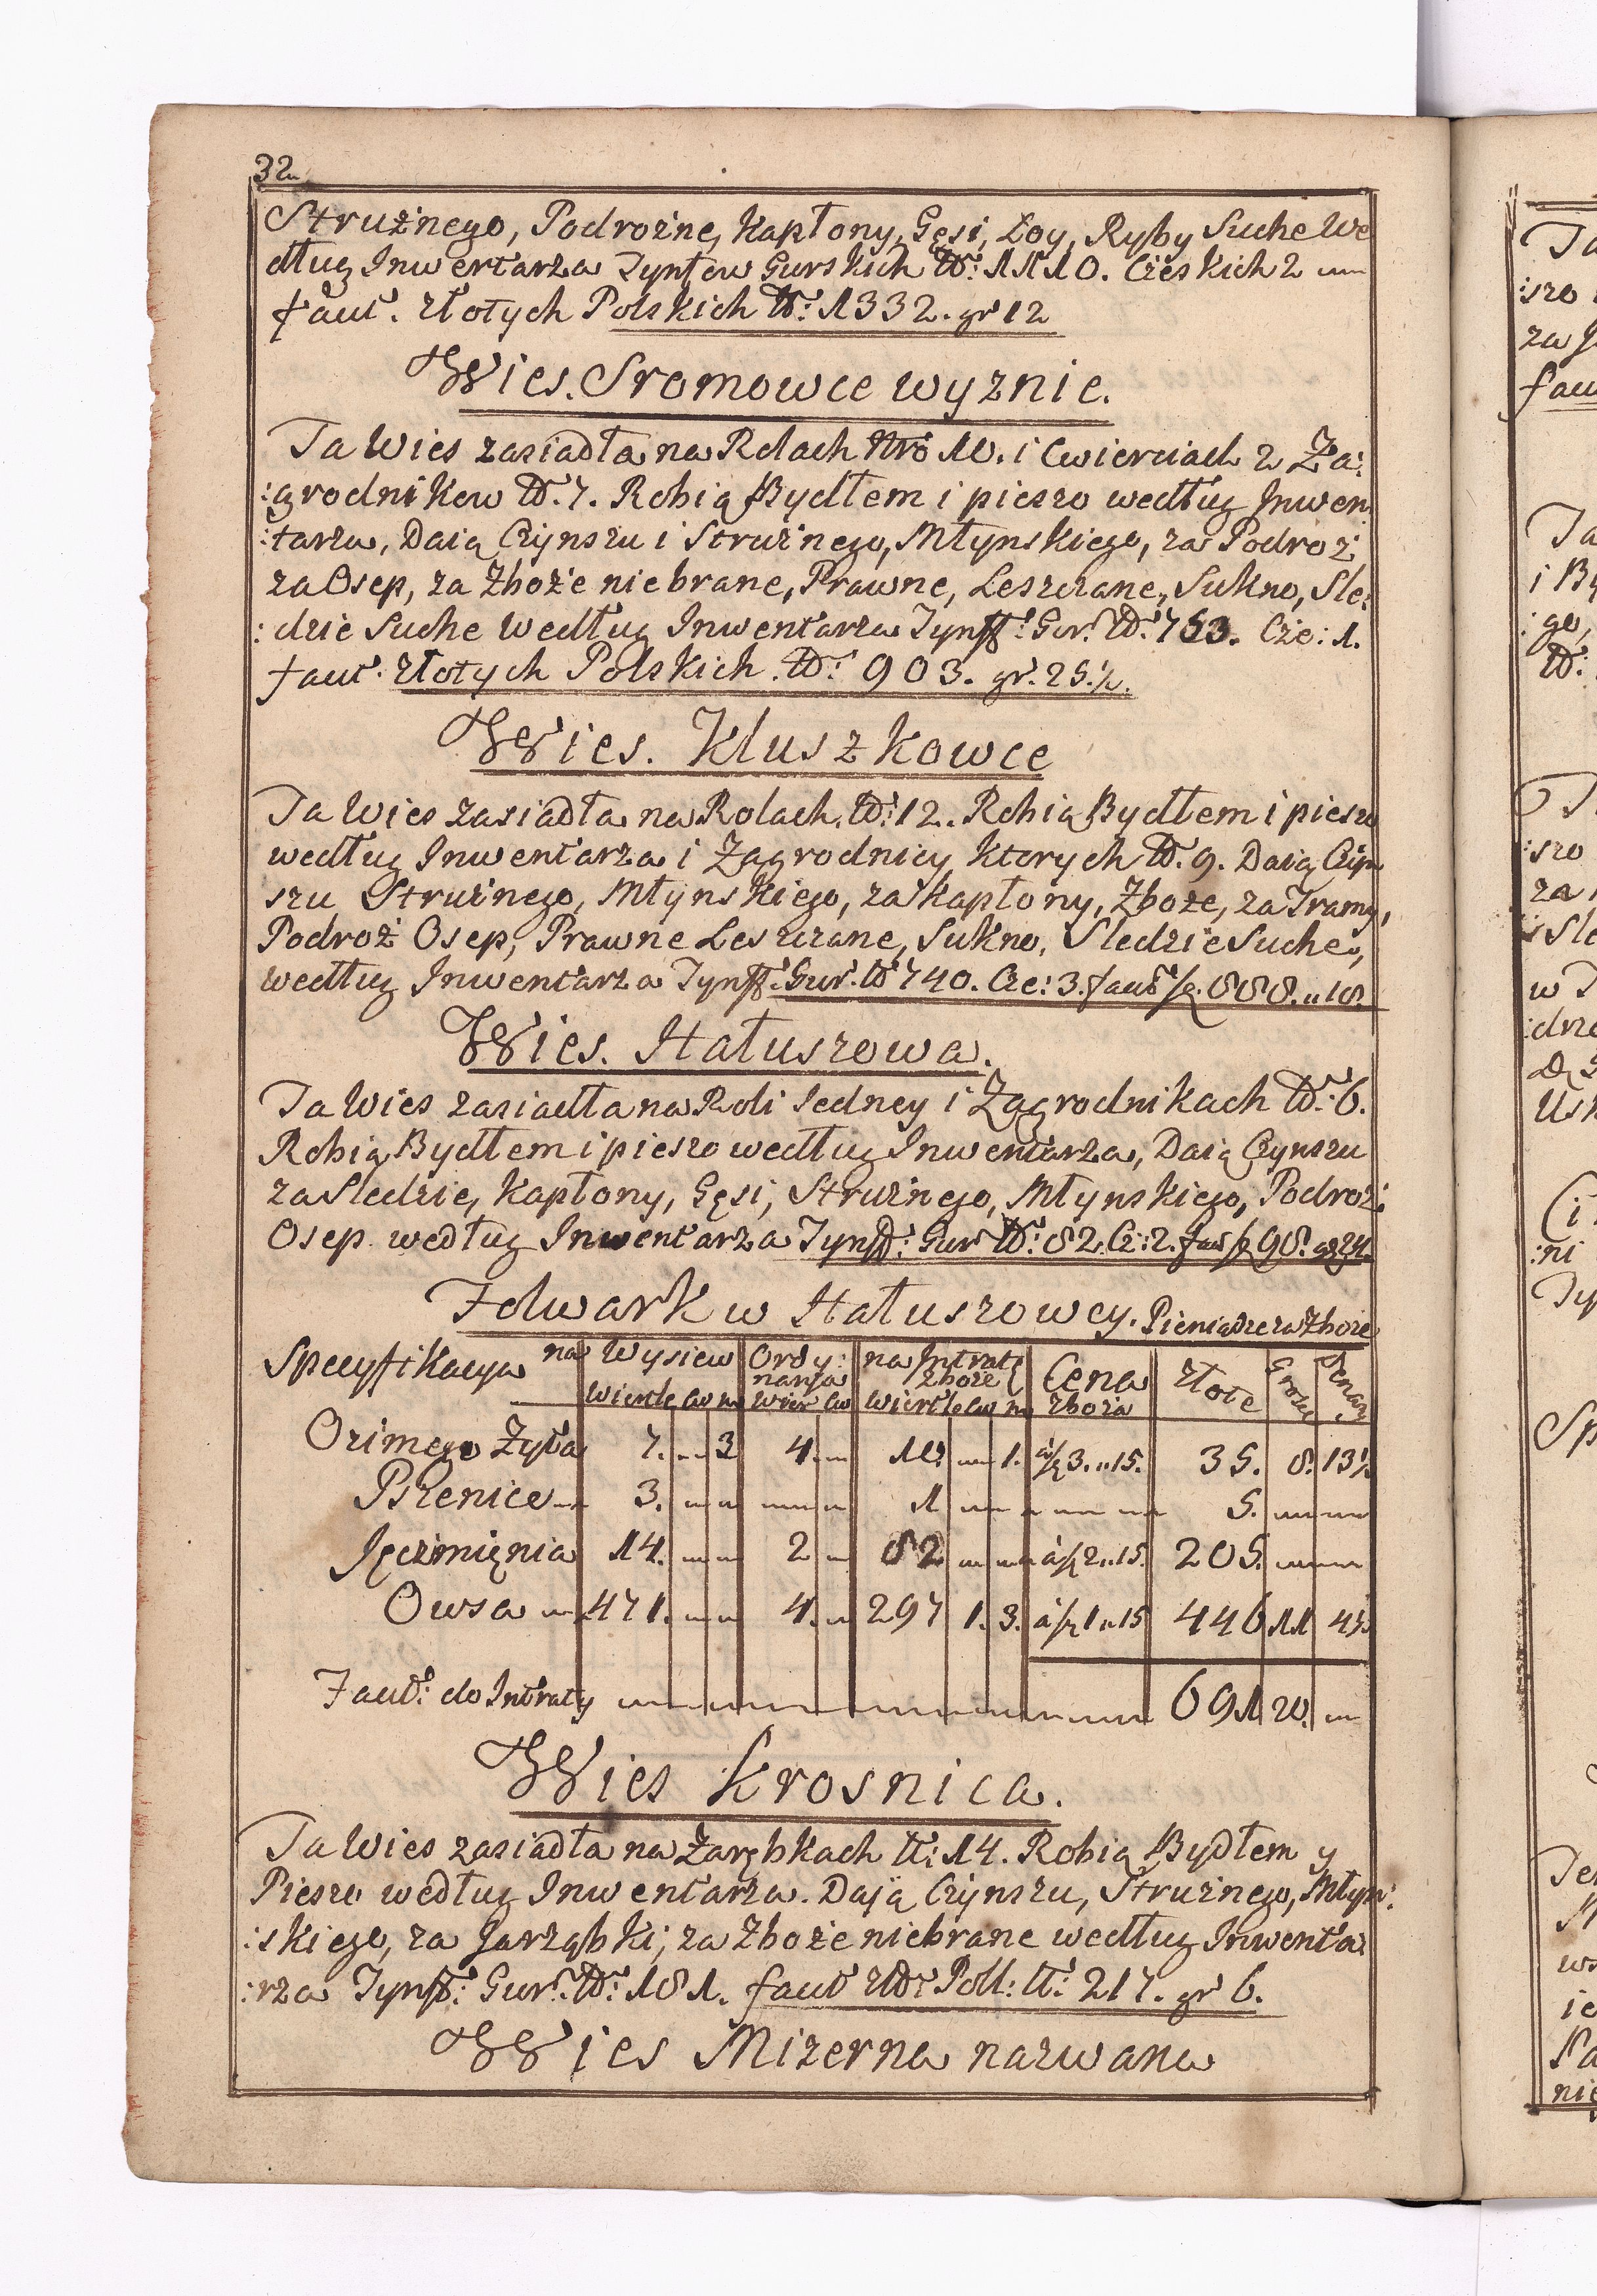 32
Strużnego, Podrożne, Kapłony, Gęsi, Łoy, Ryby Suche We
dług Inwentarza Tynfow Gurskich No: 1110. Czeskich 2
facit. złotych Polskich No: 1332. gr 12
Wies. Sromowce wyznie.
Ta Wies zasiadła na Rolach Nro 10. i Cwierciach 2 Za:
:grodnikow No. 7. Robią Bydłem i pieszo według Inwen
:tarza, Daią Czynszu i Strużnego, Młynskiego, za Podroż
za Osep, za Zboże niebrane, Prawne, Leszczane, Sukno, Sle:
:dzie Suche według Inwentarza Tynff: Gur: No: 753. Cze: 1.
facit. złotych Polskich. No: 903. gr. 25 ½.
Wies. Kluszkowce
Ta Wies zasiadła na Rolach. No: 12. Robią Bydłem i pieszo
według Inwentarza i Zagrodnicy, ktorych No. 9. Daią Czyn
szu Strużnego, Młynskiego, za Kapłony, Zboże, za Tramy,
Podroż Osep, Prawne Leszczane, Sukno, Sledzie Suche,
według Inwentarza Tynff: Gur. No 740. Cze: 3. facit f. 888. 18.
Wies. Hałuszowa.
Ta Wies zasiadła na Roli Jedney i Zagrodnikach No: 6.
Robią Bydłem i pieszo według Inwentarza, Daią Czynszu
za Sledzie, Kapłony, Gęsi, Strużnego, Młynskiego, Podroż:
Osep według Inwentarza Tynff: Gur No: 82. Cz: 2. faci f 98. gr 24.
Folwark w Hałuszowey. Pieniądze za Zboże
Specyfikacya na Wysiew Ordy: na Intratę Cena złote Grosze Denary
narya zboże
Wiertle Cw m Wier Cw Wiertle Cw m zboża
Ozimego Żyta 7. 3 4. 10. 1. a f 3. 15. 35. 8. 13½
Pszenice 3. 1 5.
Jęczmienia 14. 2 82 a f 2. 15. 205.
Owsa 471. 4. 297 1. 3. a f 1. 15 446 11 4½
Facit: do Intraty 691 20.
Wies Krosnica.
Ta Wies zasiadła na Zarębkach No: 14. Robią Bydłem y
Pieszo według Inwentarza. Dają Czynszu, Strużnego, Młyn:
:skiego, za Jarząbki, za Zboże niebrane według Inwenta
:rza Tynff: Gur: No: 181. facit złot Poll: No: 217. gr 6.
Wies Mizerna nazwana